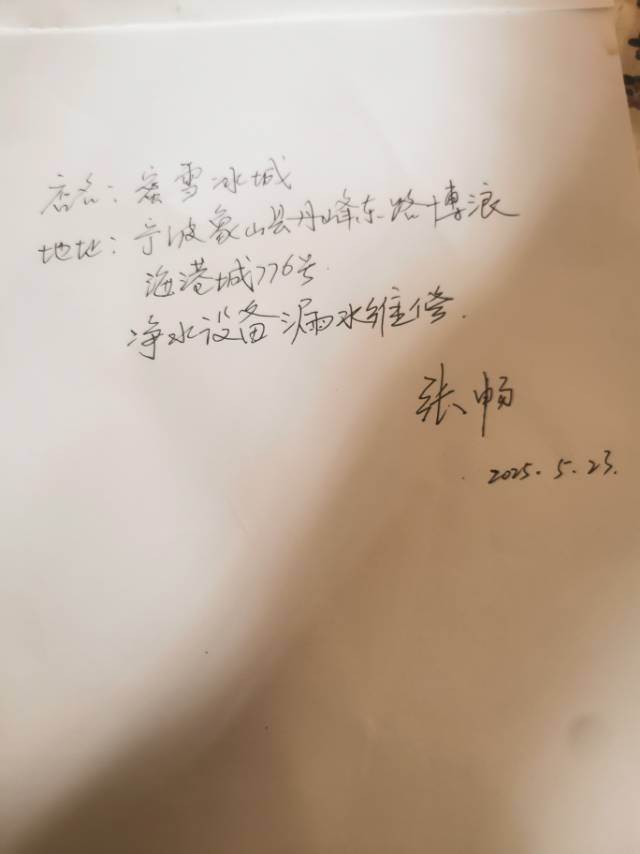 店名：蜜雪冰城
地址：宁波象山县丹峰东路博浪
海港城776号
净水设备漏水维修.
张畅
2025.5.23.